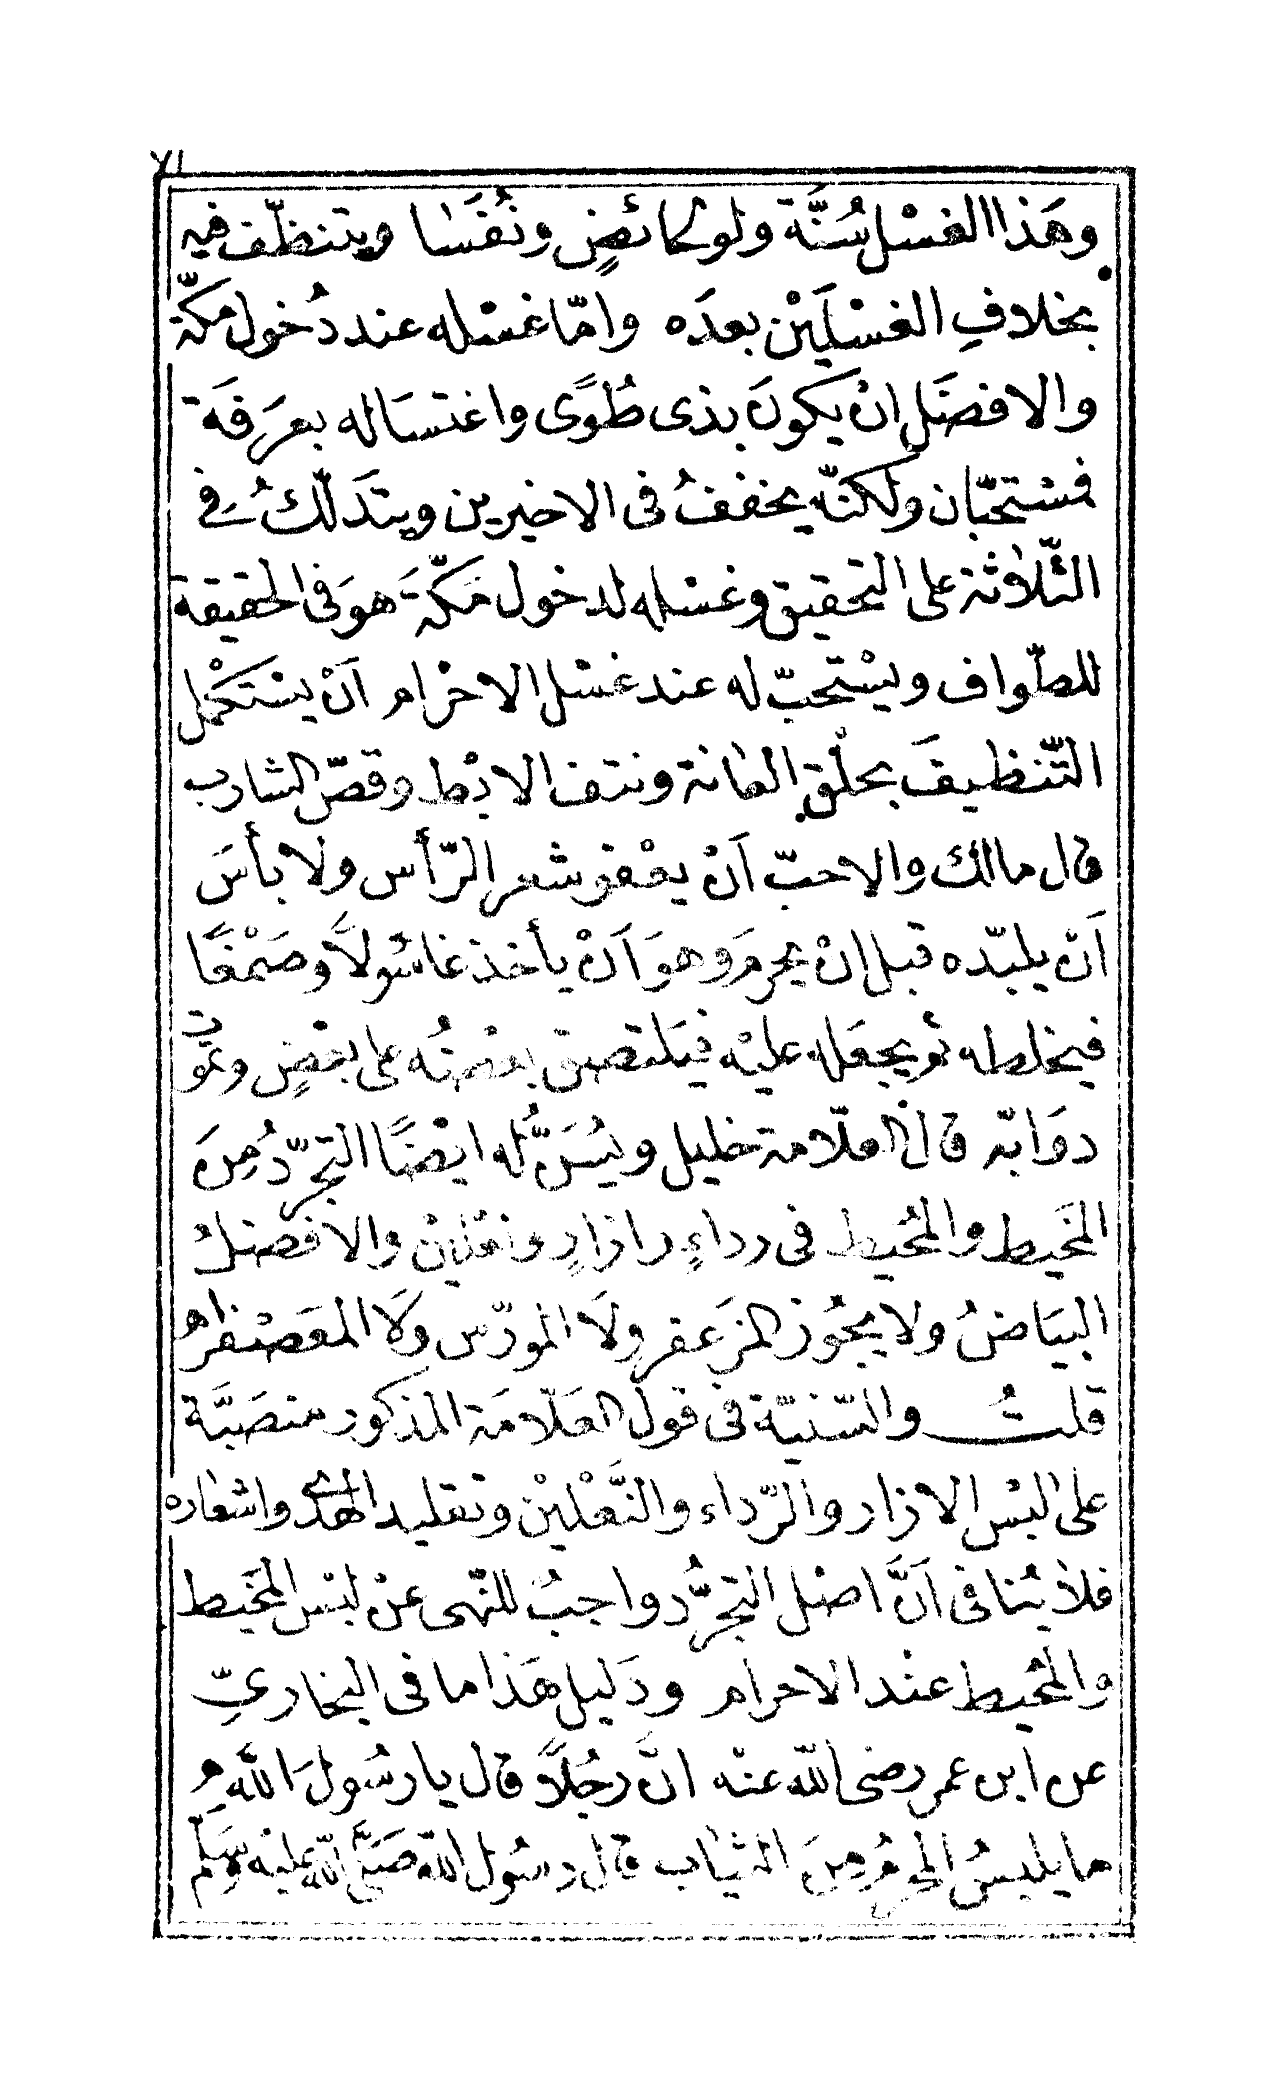 ٧١
وهَذا الغسْل سُنَّة ولو لحائضٍ ونُفَسَا ويتنظّف فيه
بخلافِ الغسْلَيْن بعدَه وامّا غسْله عند دُخول مكّة
والافضَل انْ يكونَ بذى طُوًى واغتسَاله بعَرَفَة
فمسْتحبّان ولكنّه يخففُ فى الاخيرين ويتدَلّكُ فِے
الثّلاثة على التحقيق وغسْله لدخول مَكّةَ هوَ فى الحقيقة
للطّواف ويسْتحبّ له عند غسْل الاحْرام اَنْ يسْتكْمل
التّنظيفَ بحلْقِ العانة ونتف الابْط وقصّ الشارب
قال مالك والاحبّ اَنْ يعْفو شعر الرّأس ولا بأسَ
اَنْ يلبّده قبل انْ يحرمَ وهوَ اَنْ يأخذ غاسُولاً وصَمْغًا
فيخلطه ثم يجعَله عليْه فيَلتصق بعْضُه على بعْضٍ وتموت
دوَابّه قال العلّامة خليل ويُسَنُّ له ايْضًا التجرّدُ مِنَ
المَخيط والمُحيط فى رداءٍ وازارٍ ونعْليْن والافضلُ
البيَاضُ ولا يجُوز المزَعفر ولَا المورّس ولَا المعَصْفر اهـ
قلتُ والسّنيّة فى قول العَلّامَة المذكور منصَبَّة
على لبْس الازار والرّداء والنَّعْليْن وتقليد الهَدْى واشعاره
فلا يُنافى اَنَّ اصْل التجرُّد واجبٌ للنّهى عنْ لبْس المخَيط
والمُحيط عنْد الاحرام ودَليل هَذا ما فى البخارىِّ
عن ابن عمر رضى الله عنْه انّ رجُلاً قال يا رسُولَ اللهِ مَ
ما يلبسُ المحرمُ مِنَ الثيَاب قال رسُول الله صَلَّى الله عليْه وسَلّم